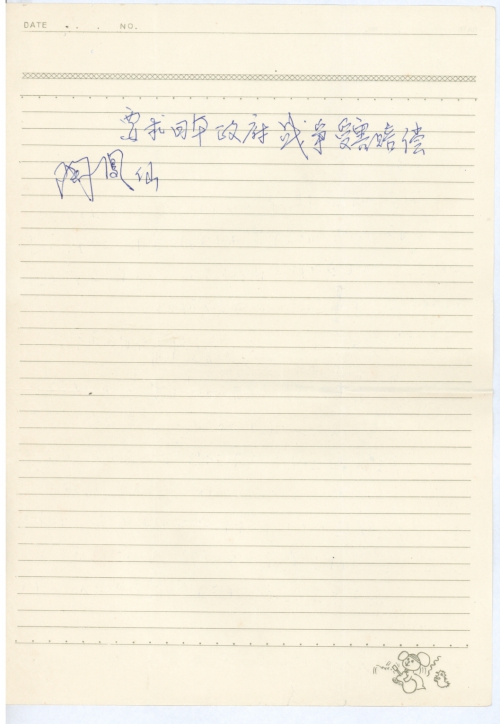 DATE . . . NO.
要求日本政府战争受害赔偿
鳳仙